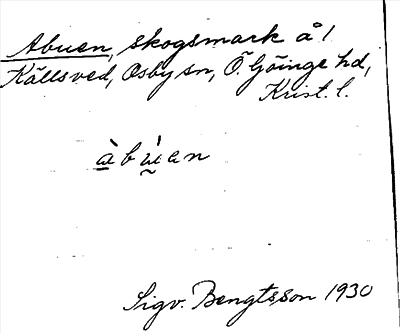 Abuen, skogsmark å 1
Källsved, Osby sn, Ö. Göinge hd,
Krist. l.
àbu̠̇en
Sigv. Bengtsson 1930